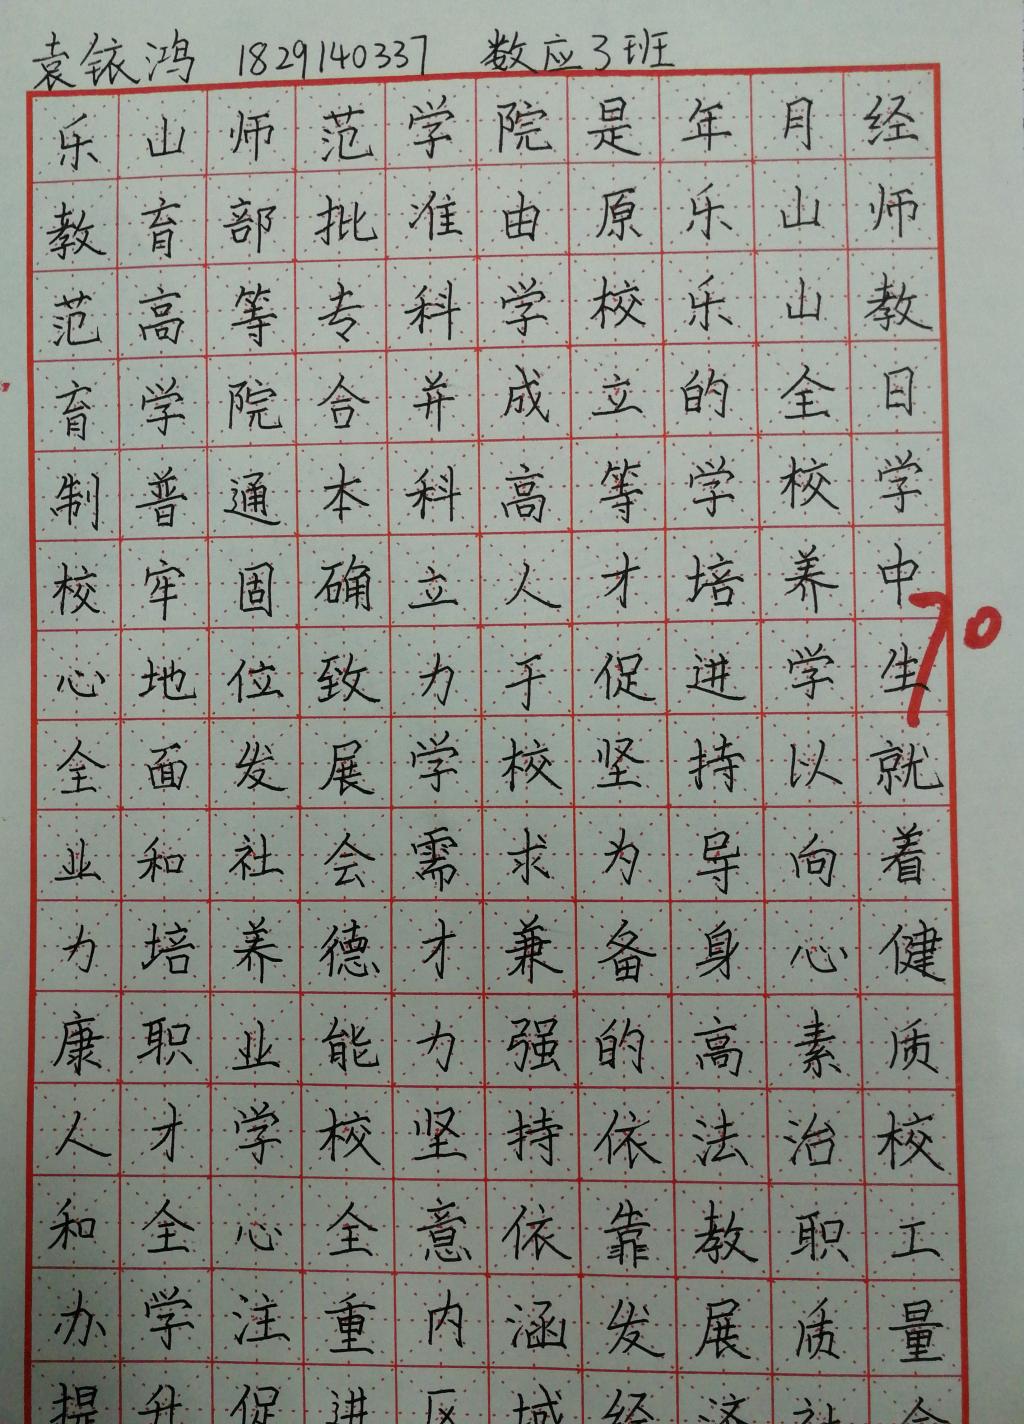 袁铱鸿 1829140337 数应3班
乐山师范学院是年月经
教育部批准由原乐山师
范高等专科学校乐山教
育学院合并成立的全日
制普通本科高等学校学
校牢固确立人才培养中
心地位致力于促进学生
70
全面发展学校坚持以就
业和社会需求为导向着
力培养德才兼备身心健
康职业能力强的高素质
人才学校坚持依法治校
和全心全意依靠教职工
办学注重内涵发展质量
提升促进区域经济社会